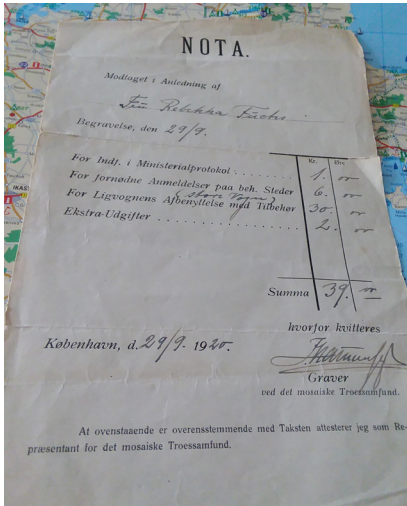 NOTA.
Modtaget i Anledning af
Fru Rebekka Fuchs.
Begravelse, den 29/9.
Kr. Øre
For Indf. i Ministerialprotokol . . . . . . . . 1. 00
For fornødne Anmeldelser paa beh. Steder 6. 00
(store Vogn)
For Ligvognens Afbenyttelse med Tilbehør 30. 00
Ekstra-Udgifter . . . . . . . . . . . . . . . . . 2. 00
Summa 39. 00
hvorfor kvitteres
København, d. 29/9. 1920.
Graver
ved det mosaiske Troessamfund.
At ovenstaaende er overensstemmende med Taksten attesterer jeg som Re-
præsentant for det mosaiske Troessamfund.